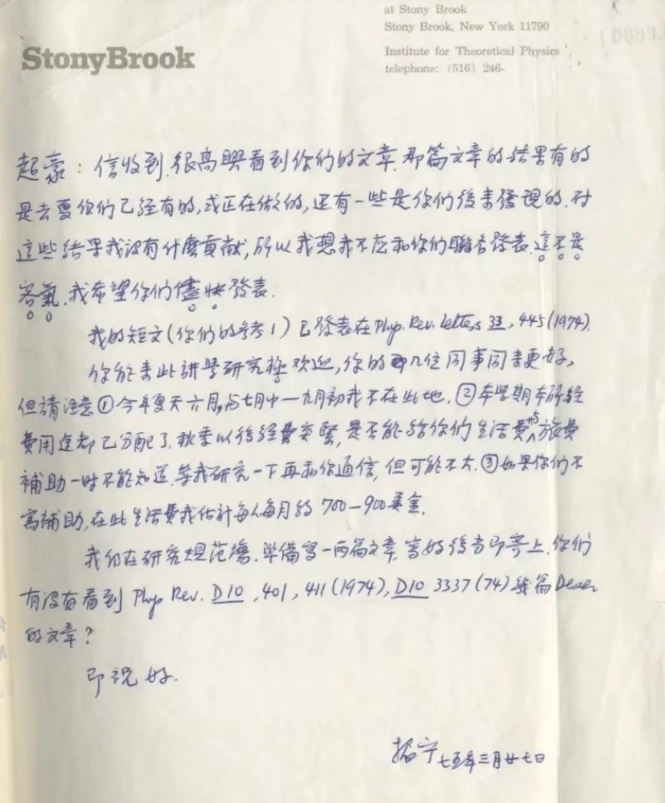 at Stony Brook
Stony Brook, New York 11790
Institute for Theoretical Physics
telephone: (516) 246-
StonyBrook
超豪：信收到.很高興看到你们的文章.那篇文章的结果有的
是去夏你们已经有的,或正在做的,还有一些是你們後来發現的.对
這些结果我没有什麼貢献,所以我想我不应和你们联名發表.這不是
客氣.我希望你们儘快發表.
我的短文(你们的参考1)已發表在Phys. Rev. Letters 33, 445(1974).
你能来此讲學研究極欢迎,你的几位同事同来更好,
但請注意①今年夏天六月,与七月中一九月初我不在此地.②本學期本所经
費用途都已分配了.秋季以後经費突緊,是否能给你们生活費与旅費
補助一时不能知道.等我研究一下再和你通信,但可能不大.③如果你们不
需補助,在此生活費我估計每人每月约 700-900美金.
我仍在研究規范場.準備写一两篇文章.寫好後当即寄上.你们
有没有看到 Phys Rev. D10, 401, 411(1974), D10 3337(74)幾篇Deser
的文章?
即祝 好.
振宁 七五年三月廿七日